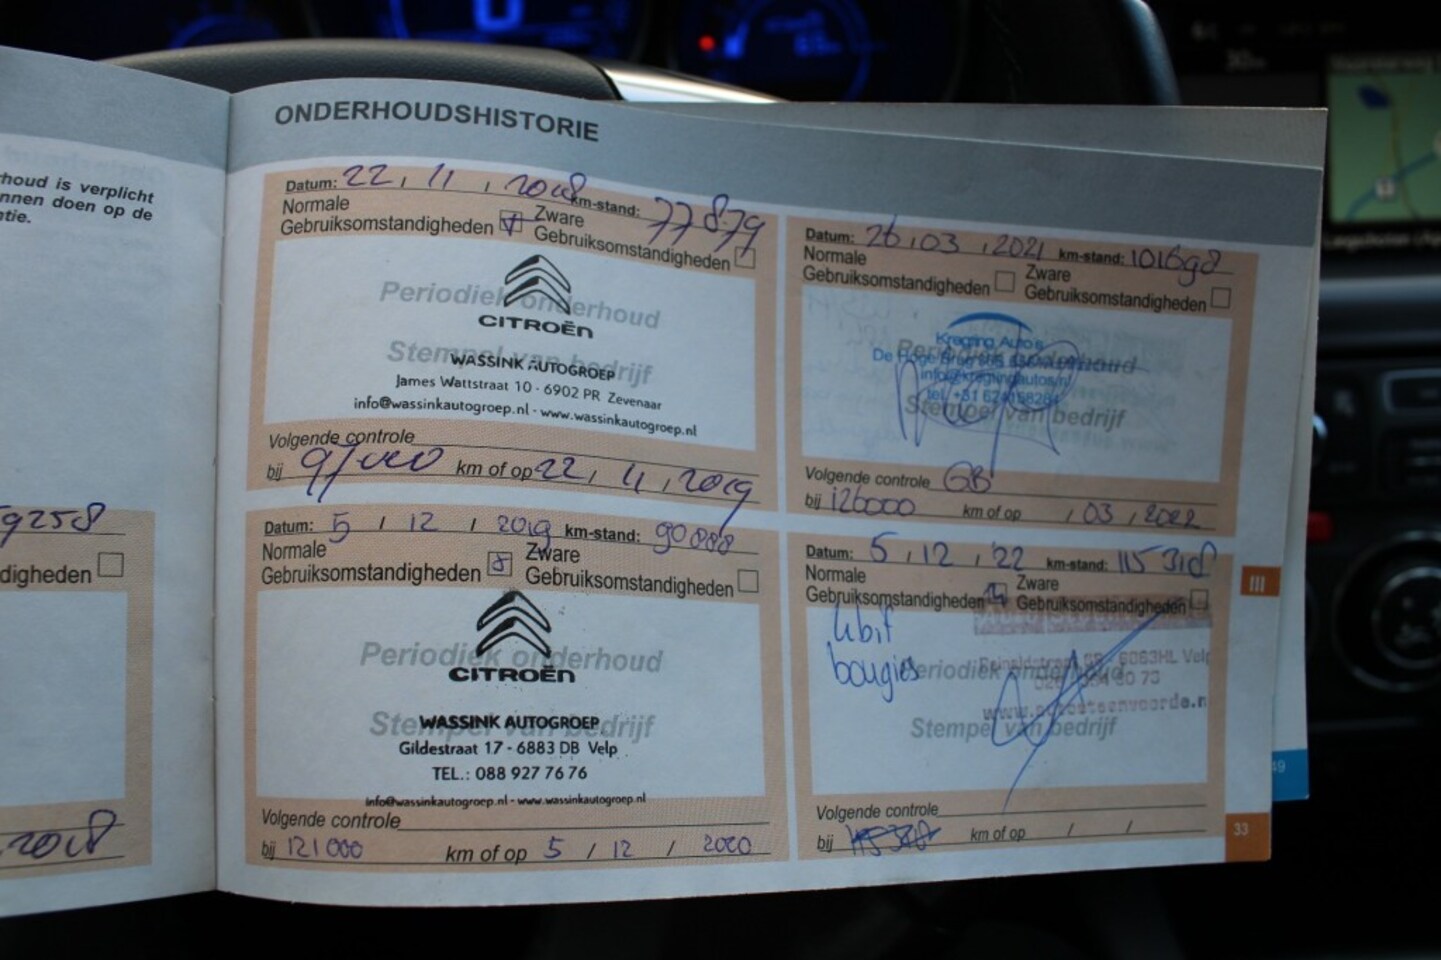 ONDERHOUDSHISTORIE
houd is verplicht
nnen doen op de
ntie.
digheden
2018
Datum: 22 / 11 / 2018 km-stand: 77879
Normale
Gebruiksomstandigheden
Zware
Gebruiksomstandigheden
Periodiek onderhoud
CITROËN
Stempel van bedrijf
WASSINK AUTOGROEP
James Wattstraat 10 - 6902 PR Zevenaar
info@wassinkautogroep.nl - www.wassinkautogroep.nl
Volgende controle
bij 97000 km of op 22 / 11 / 2019
Datum: 5 / 12 / 2019 km-stand: 90888
Normale
Gebruiksomstandigheden
Zware
Gebruiksomstandigheden
Periodiek onderhoud
CITROËN
Stempel van bedrijf
WASSINK AUTOGROEP
Gildestraat 17 - 6883 DB Velp
TEL.: 088 927 76 76
info@wassinkautogroep.nl - www.wassinkautogroep.nl
Volgende controle
bij 121000 km of op 5 / 12 / 2020
Datum: 26 / 03 / 2021 km-stand: 101698
Normale
Gebruiksomstandigheden
Zware
Gebruiksomstandigheden
Kregting Auto's
De Hoge
Periodiek onderhoud
info@kregtingautos.nl
tel. +31 624158284
Stempel van bedrijf
Volgende controle GB
bij 126000 km of op / 03 / 2022
Datum: 5 / 12 / '22 km-stand: 115318
Normale
Gebruiksomstandigheden
Zware
Gebruiksomstandigheden
bougies
Periodiek onderhoud
6883HL Velp
Stempel van bedrijf
Volgende controle
bij km of op / /
III
49
33